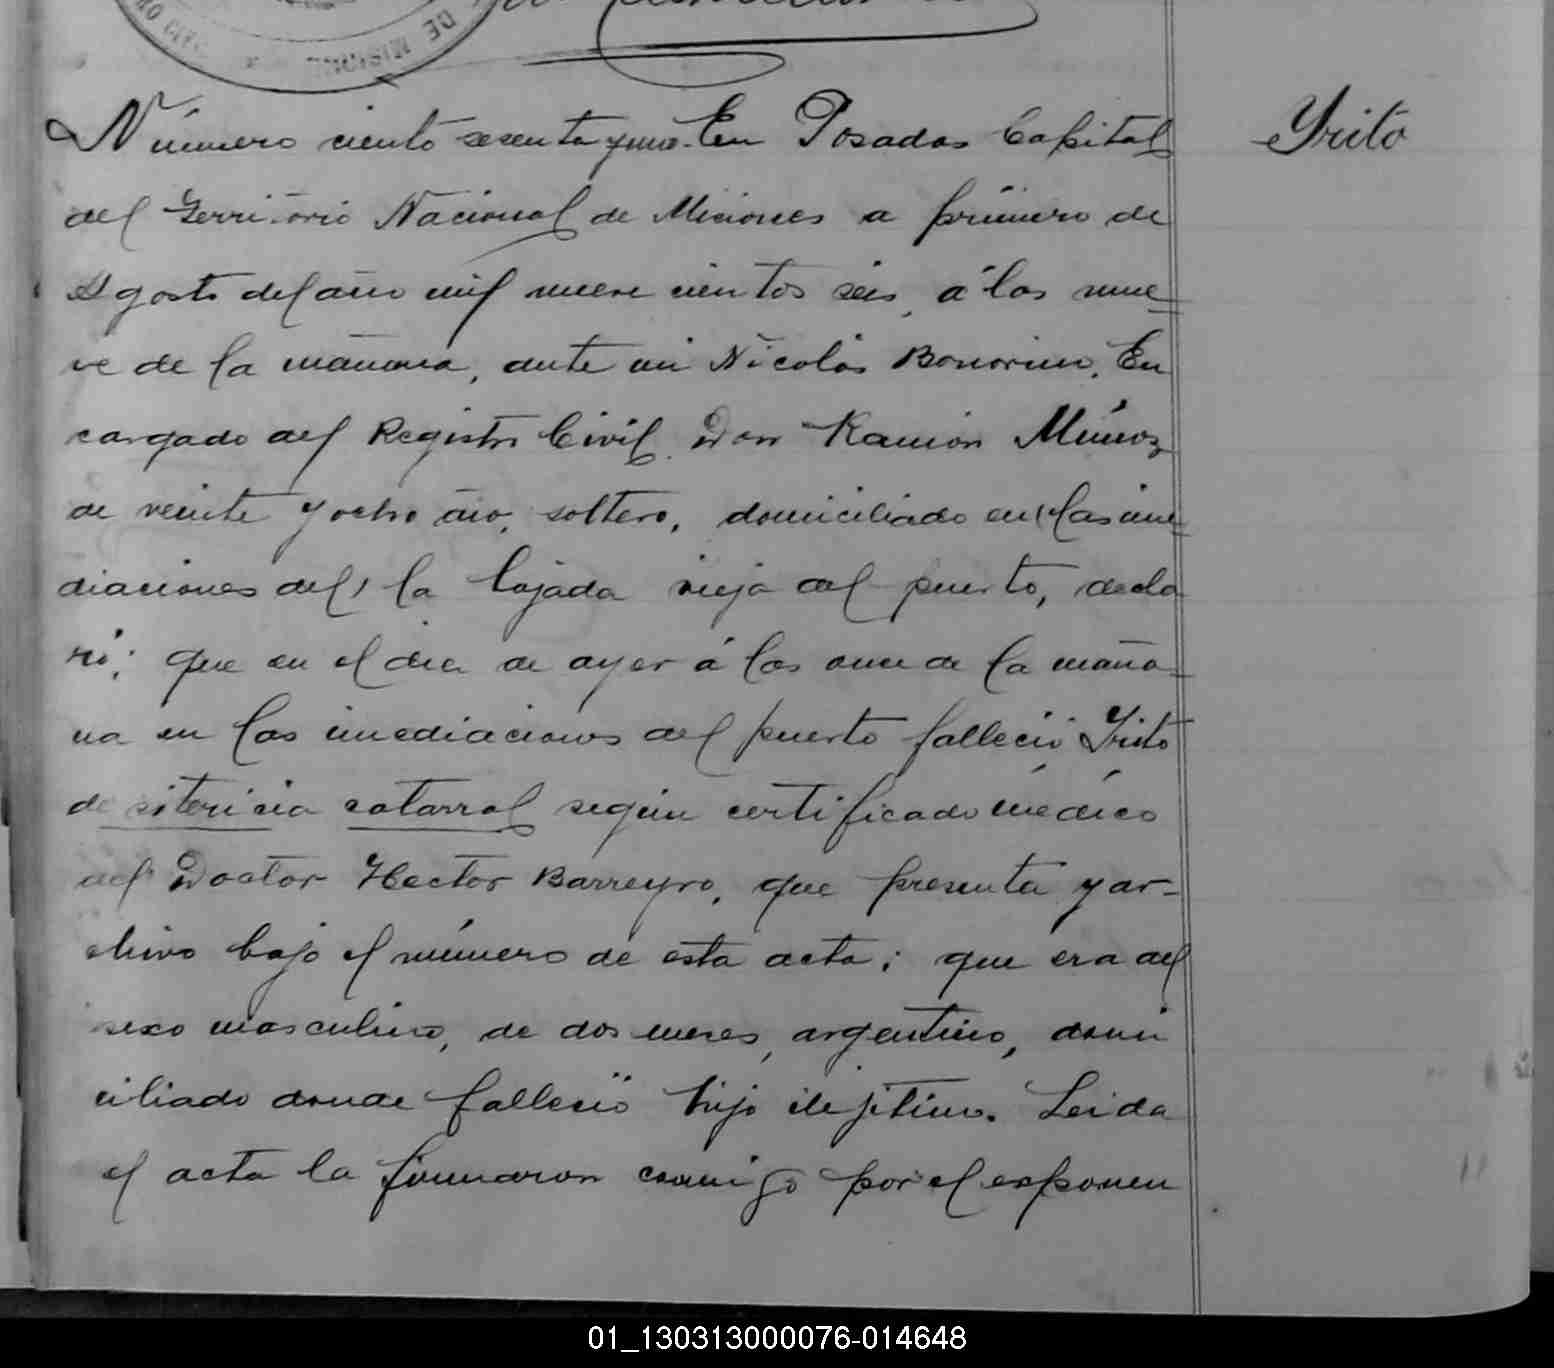 DE MISIONES
Número ciento sesenta y uno. En Posadas Capital
Yrito
del Territorio Nacional de Misiones a primero de
Agosto del año mil nueve cientos seis, á las nue
ve de la mañana, ante mi Nicolás Bonorino, En
cargado del Registro Civil, Don Ramón Múñoz
de veinte y ocho año, soltero, domiciliado en las ime
diaciones del la bajada vieja del puerto, decla
ró: que en el dia de ayer á las once de la maña-
na en las imediaciones del puerto falleció Yrito
de itericia catarral según certificado médico
del Doctor Hector Barreyro, que presenta y ar-
chivo bajo el número de esta acta; que era del
sexo masculino, de dos meses, argentino, domi
ciliado donde falleció hijo ilejitimo. Leida
el acta la firmaron conmigo por el exponen
01_130313000076-014648